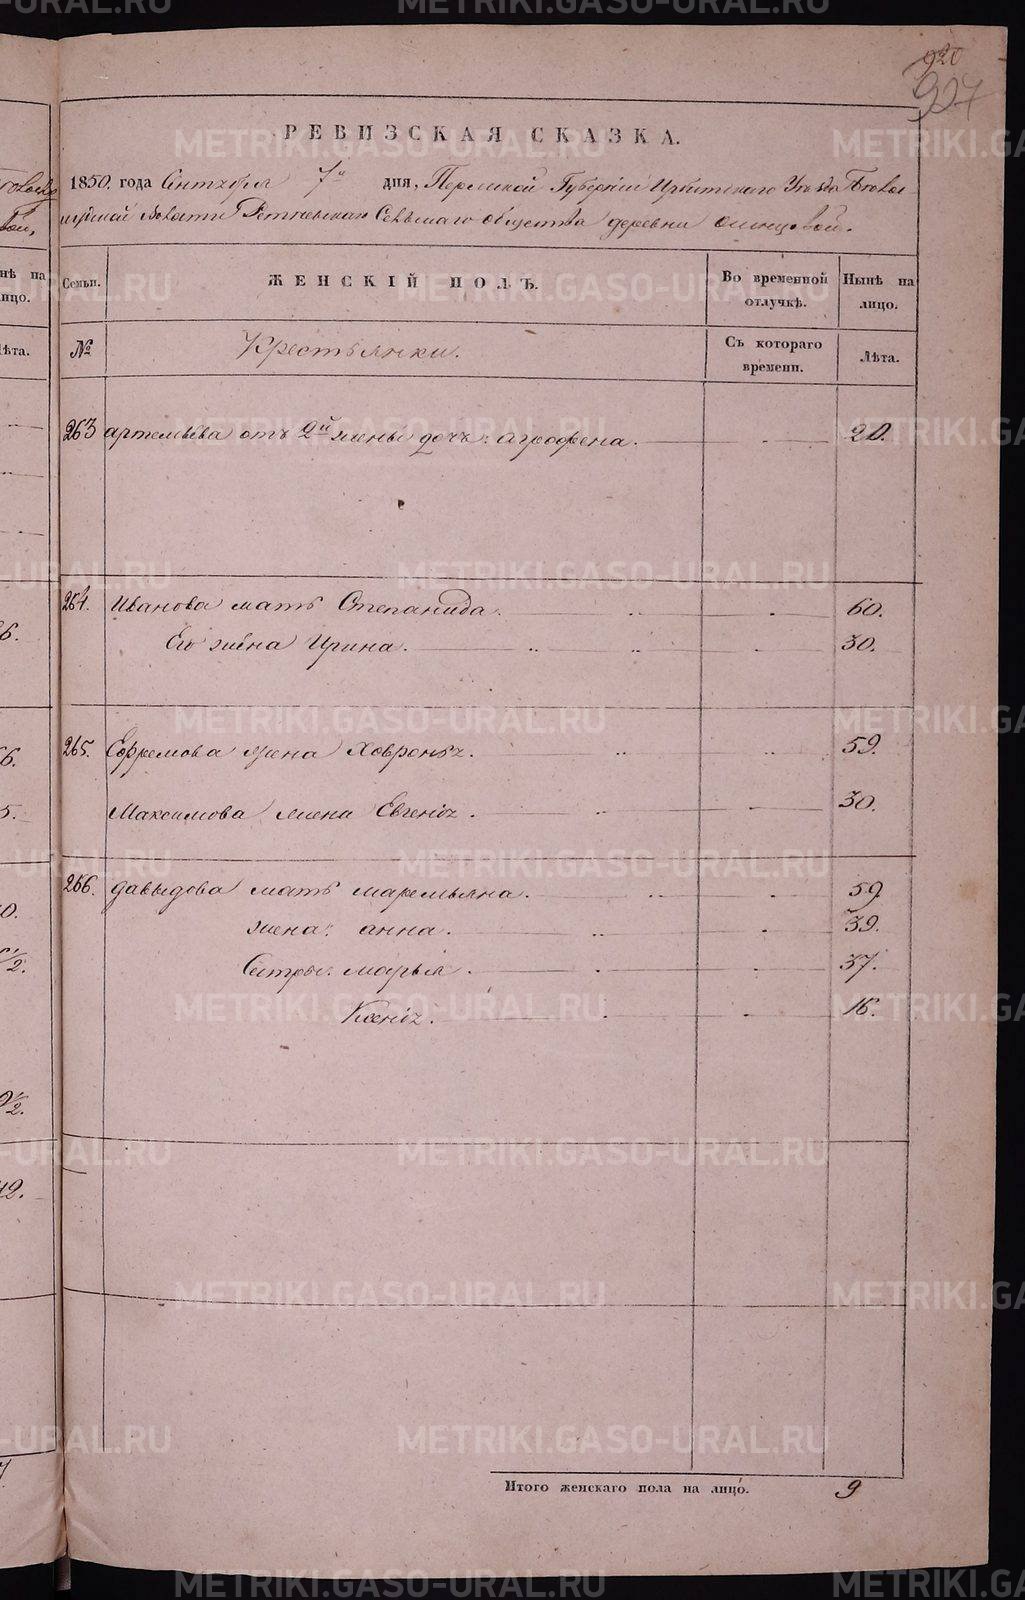 920
907
РЕВИЗСКАЯ СКАЗКА.
1850. года Сентября 7го дня, Пермской Губернiи Ирбитского Уезда
волости Сельмаго общества деревни
Семьи. ЖЕНСКIЙ ПОЛЪ. Во временной отлучкѣ. Нынѣ на лицо.
№ Крестьянки. Съ котораго времени. Лѣта.
263 артемьева отъ 2й жены дочь: агрофена. 20.
264. Иванова мать Степанида. 60.
Его жена Ирина. 30.
265. Ефремова жена Ховронья. 59.
Максимова жена Евгенiя. 30.
266. давыдова мать маремьяна. 59.
жена: анна. 39.
Сестры: марья. 37.
Ксенiя. 16.
Итого женскаго пола на лицо. 9
METRIKI.GASO-URAL.RU